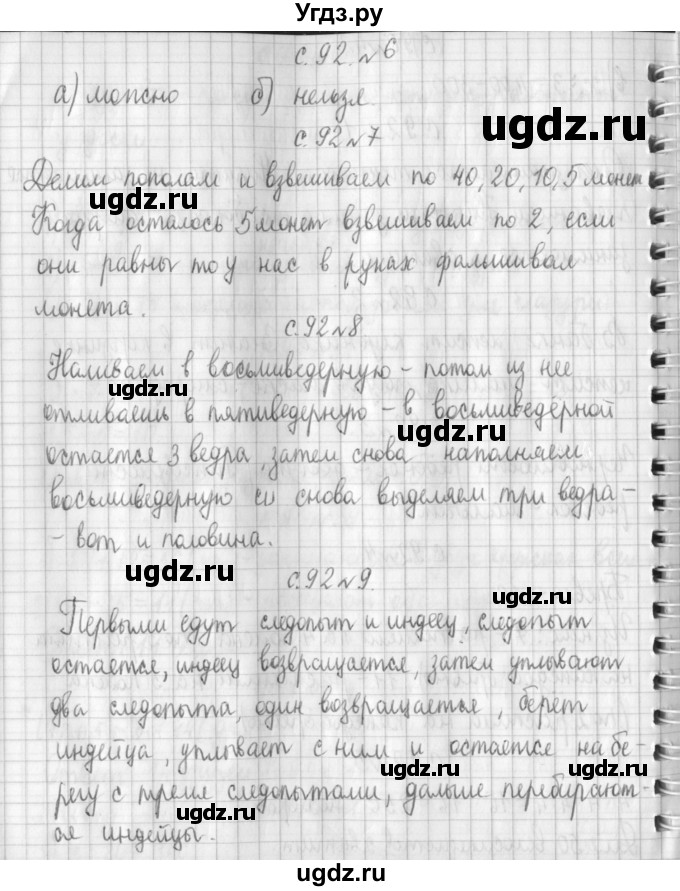 Угдз.ру
с.92.№6
а) можно б) нельзя.
ugdz.ru
с.92№7
Делим пополам и взвешиваем по 40, 20, 10, 5 монет
ugdz.ru
Когда осталось 5 монет взвешиваем по 2, если
они равны то у нас в руках фальшивая
монета.
с.92№8
Наливаем в восьмиведерную – потом из нее
ugdz.ru
отливаешь в пятиведерную – в восьмиведёрной
ugdz.ru
остается 3 ведра, затем снова наполняем
восьмиведерную и снова выделяем три ведра –
- вот и половина.
ugdz.ru
с.92№9.
Первыми едут следопыт и индеец, следопыт
ugdz.ru
остается, индеец возвращается, затем уплывают
два следопыта, один возвращается, берет
индейца, уплывает с ним и остается на бе-
ugdz.ru
регу с тремя следопытами, дальше перебирают-
ugdz.ru
ся индейцы.
ugdz.ru